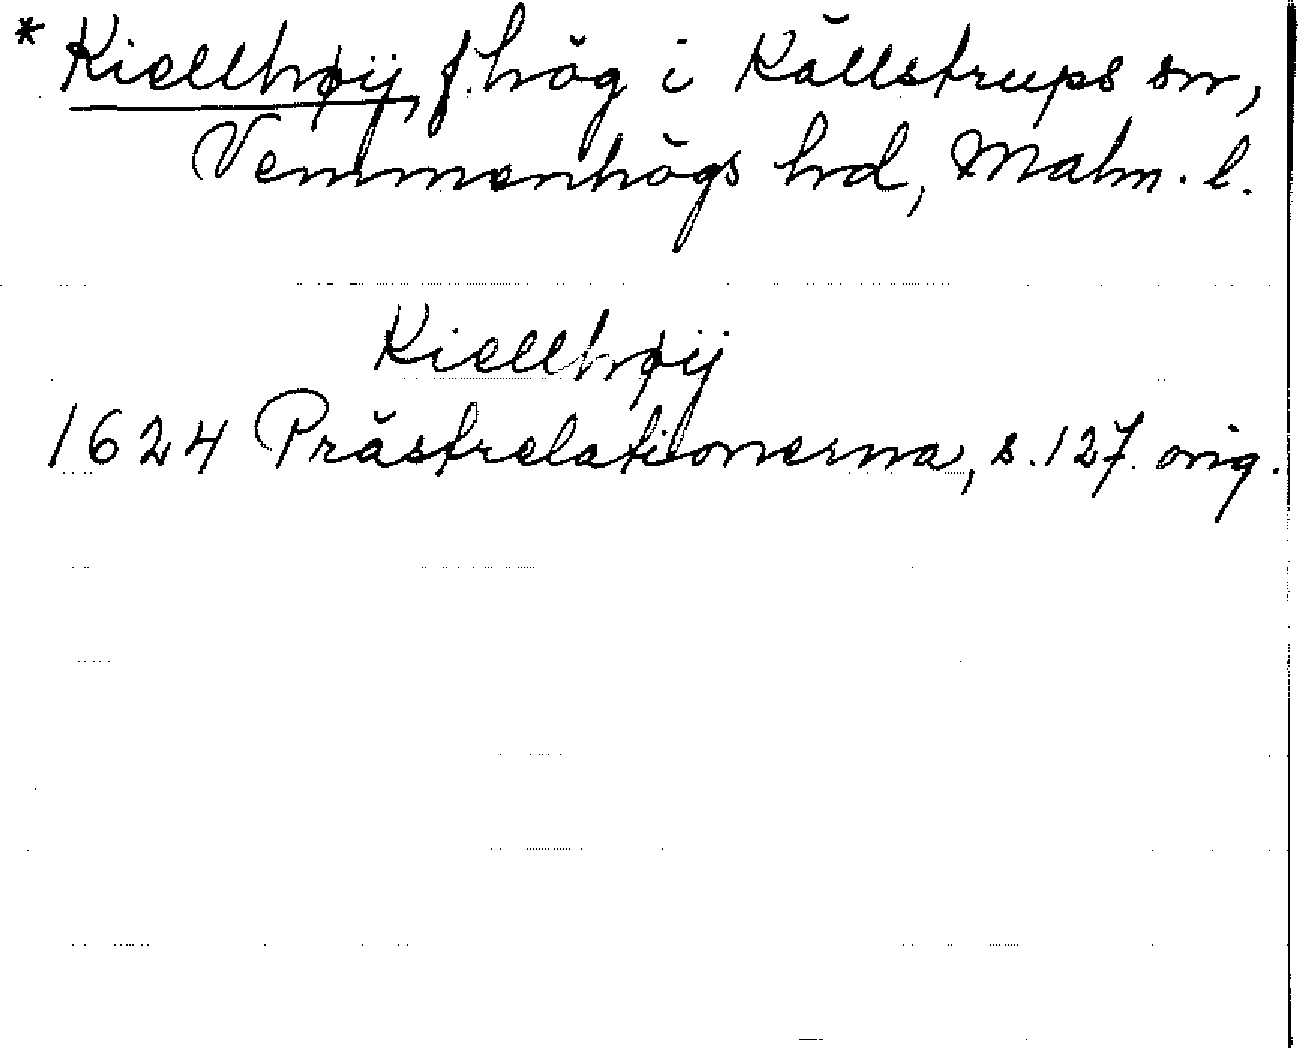 * Kiellhøij, f. hög i Källstrups sn,
Vemmenhögs hd, Malm. l.
Kiellhøij
1624 Prästrelationerna, s. 127. orig.